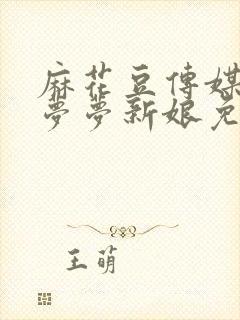 麻花豆传媒
梦梦新娘免
王萌